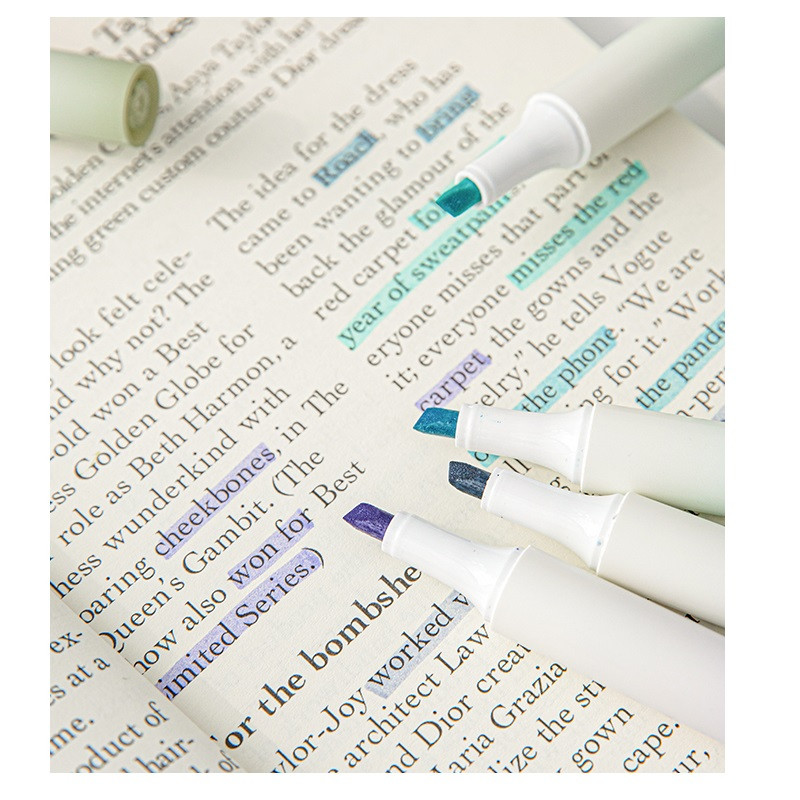 Globes
Anya Taylor
the internet's attention with her
ing green custom couture Dior dress
look felt cele-
nd why not? The
-old won a Best
ess Golden Globe for
role as Beth Harmon, a
hess wunderkind with
oaring cheekbones, in The
Queen's Gambit. (The
now also won for Best
imited Series.)
or the bombshe
ylor-Joy worked w
e architect Law
nd Dior creat
Maria Grazia
lize the sti
gown
cape.
ur,
The idea for the dress
came to Roach, who has
been wanting to bring
back the glamour of the
red carpet to
year of sweatpants.
eryone misses that part of
it; everyone misses the red
carpet, the gowns and the
elry," he tells Vogue
the phone. "We are
ing for it." Work
the pande
n-pers
ex-
s at a
me.
oduct of
hair-